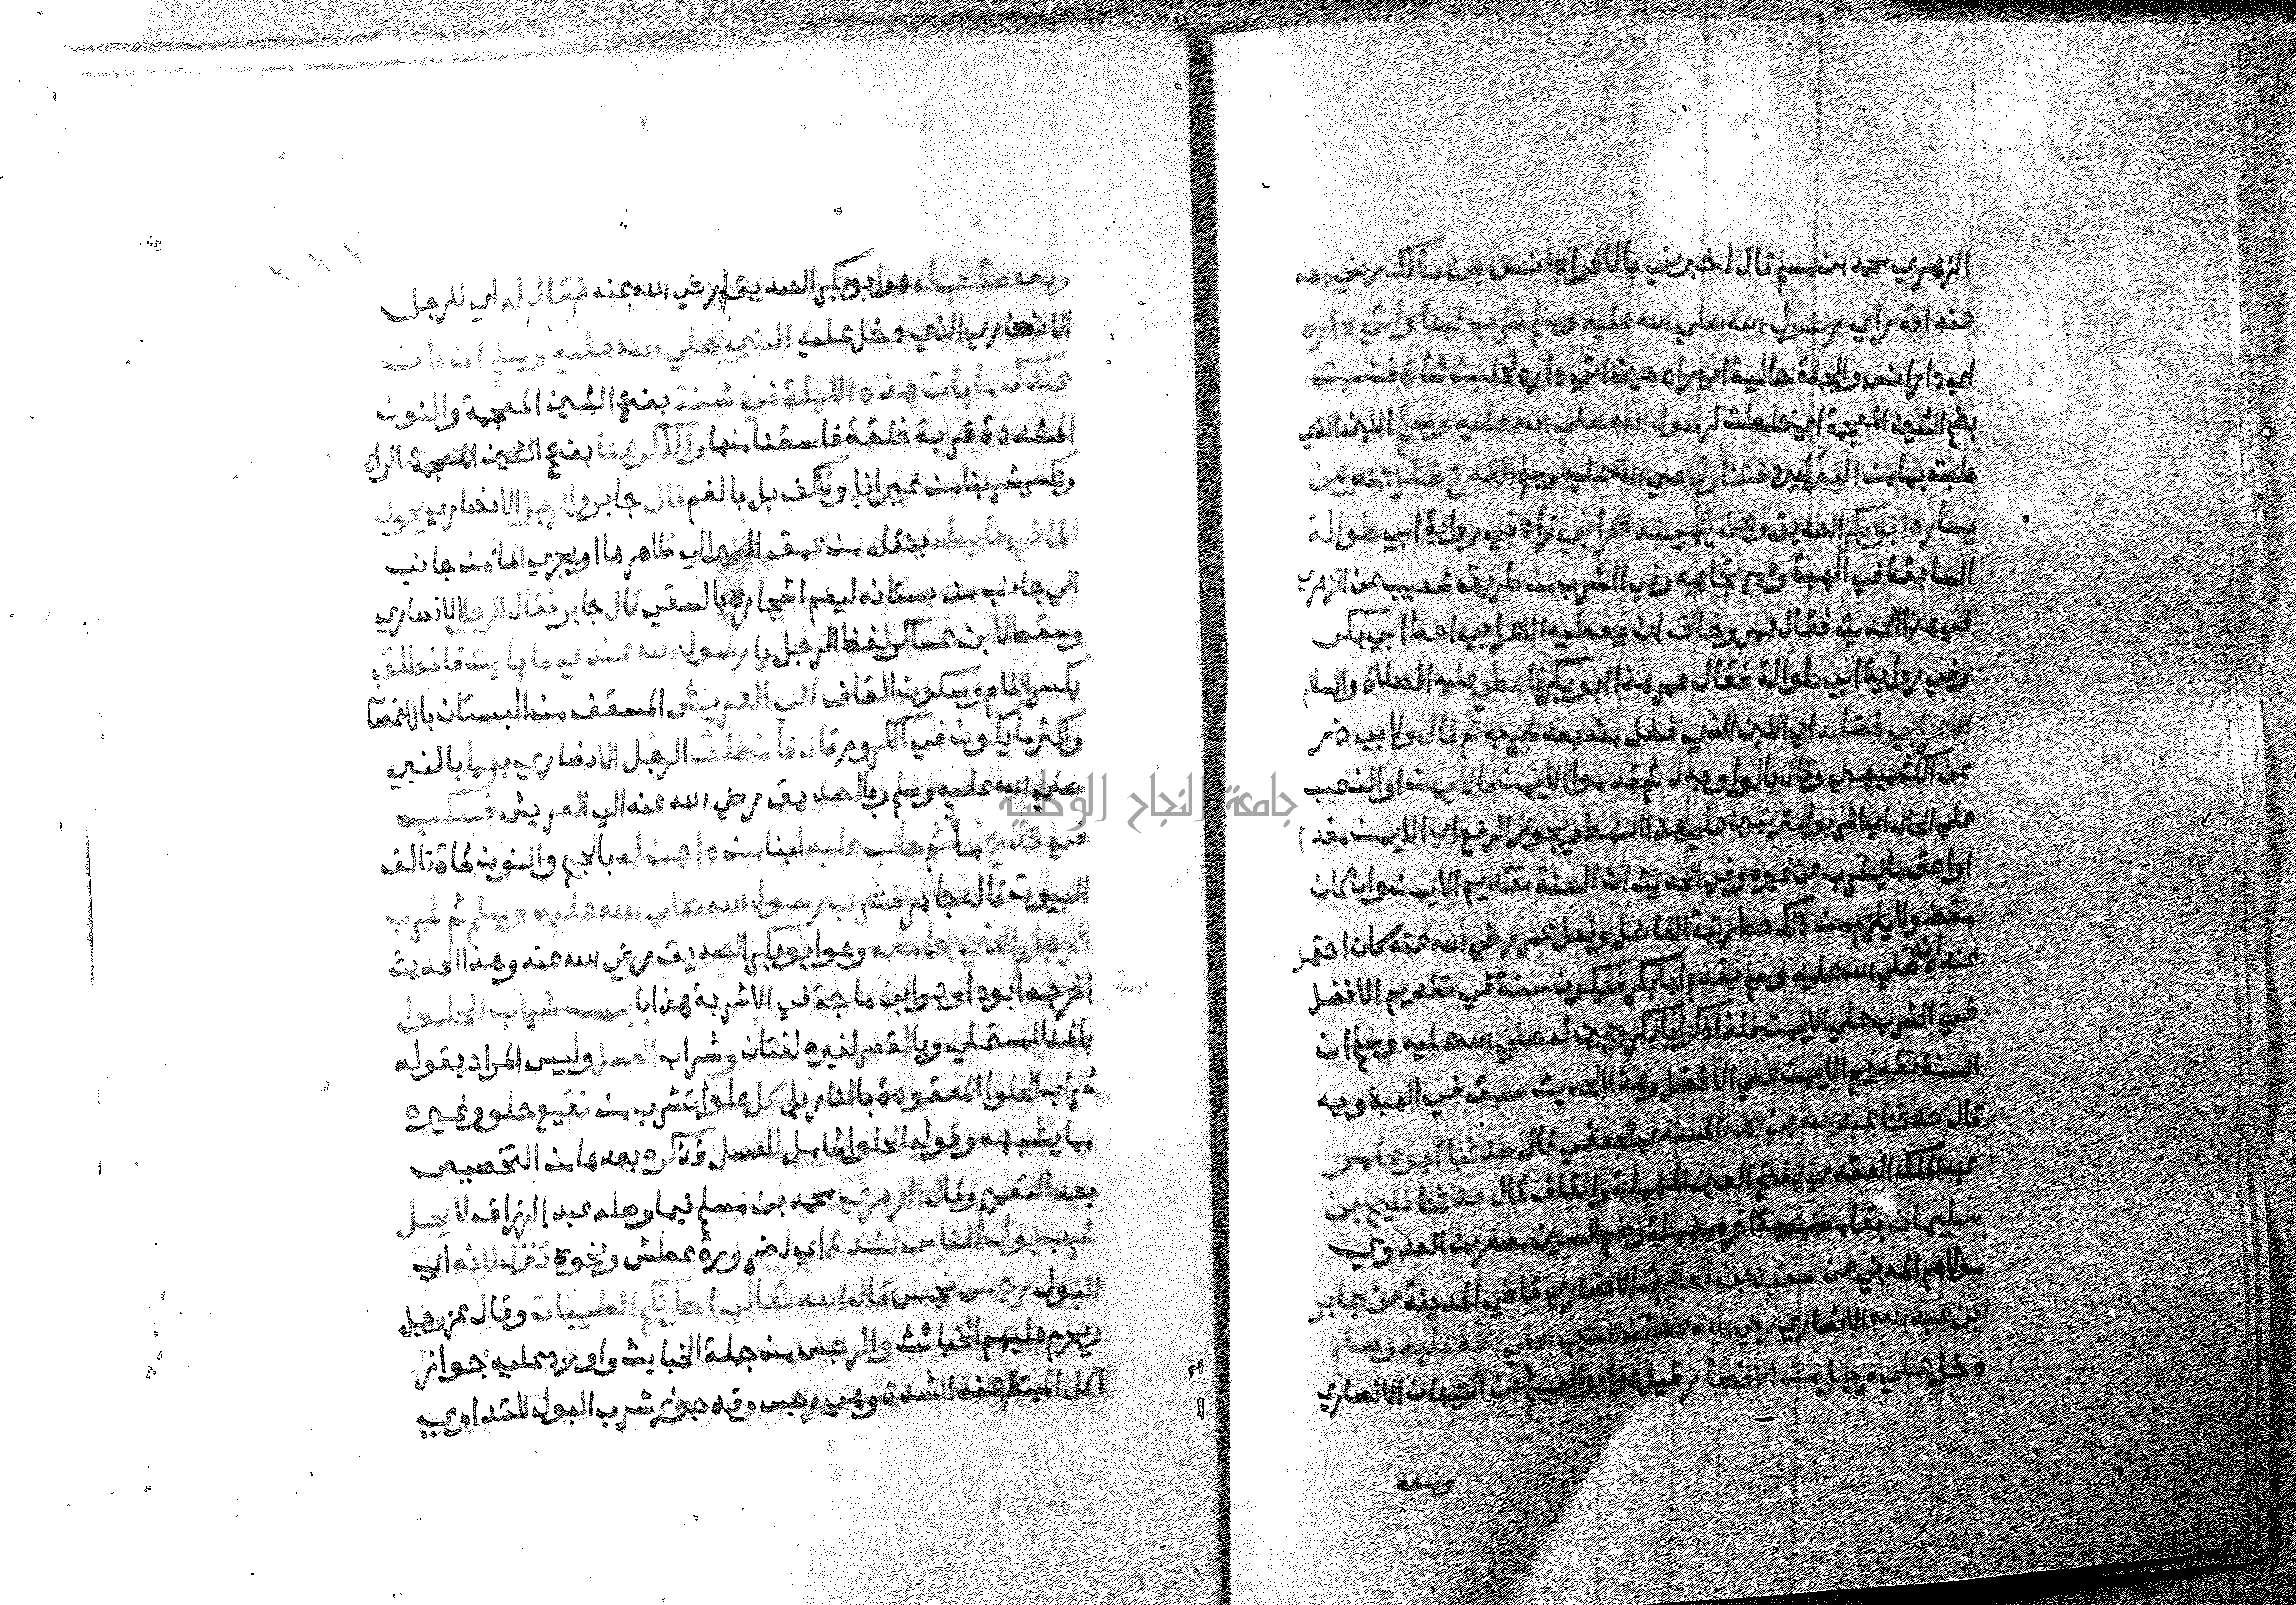 الزهري محمد بن مسلم قال اخبرني بالافراد انس بن مالك رضي الله
عنه انه راي رسول الله صلي الله عليه وسلم شرب لبنا واتي داره
اي دار انس والجملة حالية اي راه حين اتي داره فحلبت شاة فشبت
بضم الشين المعجمة اي خلطت لرسول الله صلي الله عليه وسلم اللبن الذي
حلبته بما من البير فتناول صلي الله عليه وسلم القدح فشرب وعن
يساره ابو بكر الصديق وعن يمينه اعرابي زاد في رواية ابي طوالة
السابقة في الهبة وعمر تجاهه وفي الشرب من طريق شعيب عن الزهري
في هذا الحديث فقال عمر وخاف ان يعطيه الاعرابي اعط ابي بكر
وفي رواية ابي طوالة فقال عمر هذا ابو بكر فاعطي عليه الصلاة والسلام
الاعرابي فضله اي اللبن الذي فضل منه بعد شربه ثم قال ولابي ذر
عن الكشميهني وقال بالواو بدل ثم قدموا الايمن فالايمن او النصب
علي الحال اي اشربوا مترتبين علي هذا النمط ويجوز الرفع اي الايمن مقدم
او احق ما يشرب عن غيره وفي الحديث ان السنة تقديم الايمن وان كان
مفضولا يلزم من ذلك حط رتبة الفاضل ولعل عمر رضي الله عنه كان احتمل
عنده انه صلي الله عليه وسلم يقدم ابا بكر فيكون سنة في تقديم الافضل
في الشرب علي الايمن فلذا ذكر ابا بكر وبين له صلي الله عليه وسلم ان
السنة تقديم الايمن علي الافضل وهذا الحديث سبق في الهبة وبه
قال حدثنا عبد الله بن محمد المسندي الجعفي قال حدثنا ابو عامر
عبد الملك العقدي بفتح العين المهملة والقاف قال حدثنا فليح بن
سليمان بفا مضمومة اخره مهملة وضم السين مصغرين العدوي
مولاهم المدني عن سعيد بن الحارث الانصاري قاضي المدينة عن جابر
ابن عبد الله الانصاري رضي الله عنه ان النبي صلي الله عليه وسلم
دخل علي رجل من الانصار قيل هو ابو الهيثم بن التيهان الانصاري
ومعه
ومعه صاحب له هو ابو بكر الصديق رضي الله عنه فقال له اي للرجل
الانصاري الذي دخل عليه النبي صلي الله عليه وسلم ان كان
عندك ما بات هذه الليلة في شنة بفتح الشين المعجمة والنون
المشددة قربة خلقة فاسقنا منها والا كرعنا بفتح الراء
وتكسر شربنا من غير انا ولا كف بل بالفم قال جابر والرجل الانصاري يحول
الما في حايطه ينقله من عمق البير الي ظاهرها او يجري الما من جانب
الي جانب من بستانه ليعم اشجاره بالسقي قال جابر فقال الرجل الانصاري
وسقط لابن عساكر لفظ الرجل يا رسول الله عندي ما بايت فانطلق
بكسر اللام وسكون القاف الي العريش المسقف من البستان بالاغصان
واكثر ما يكون في الكروم قال فانطلق الرجل الانصاري بهما بالنبي
صلي الله عليه وسلم وبالصديق رضي الله عنه الي العريش فسكب
في قدح ما ثم حلب عليه لبنا من داجن له بالجيم والنون شاة تالف
البيوت قال جابر فشرب رسول الله صلي الله عليه وسلم ثم شرب
الرجل الذي جا معه وهو ابو بكر الصديق رضي الله عنه وهذا الحديث
اخرجه ابو داود وابن ماجة في الاشربة هذا باب شراب الحلوا
بالمد للمستملي وبالقصر لغيره لغتان وشراب العسل وليس المراد بقوله
شراب الحلوا المعقودة بالنار بل كل حلو تشرب من نقيع حلو وغيره
مما يشبهه وقوله الحلوا شامل للعسل فذكره بعدها من التخصيص
بعد التعميم وقال الزهري محمد بن مسلم فيما وصله عبد الرزاق لا يحل
شرب بول الناس لشدة اي لضرورة عطش ونحوه تنزل لانه اي
البول رجس نجس قال الله تعالي احل لكم الطيبات وقال عز وجل
ويحرم عليهم الخبائث والرجس من جملة الخبايث واورد عليه جواز
اكل الميتة عند الشدة وهي رجس وقد جوز شرب البول للتداوي
جامعة النجاح الوطنية